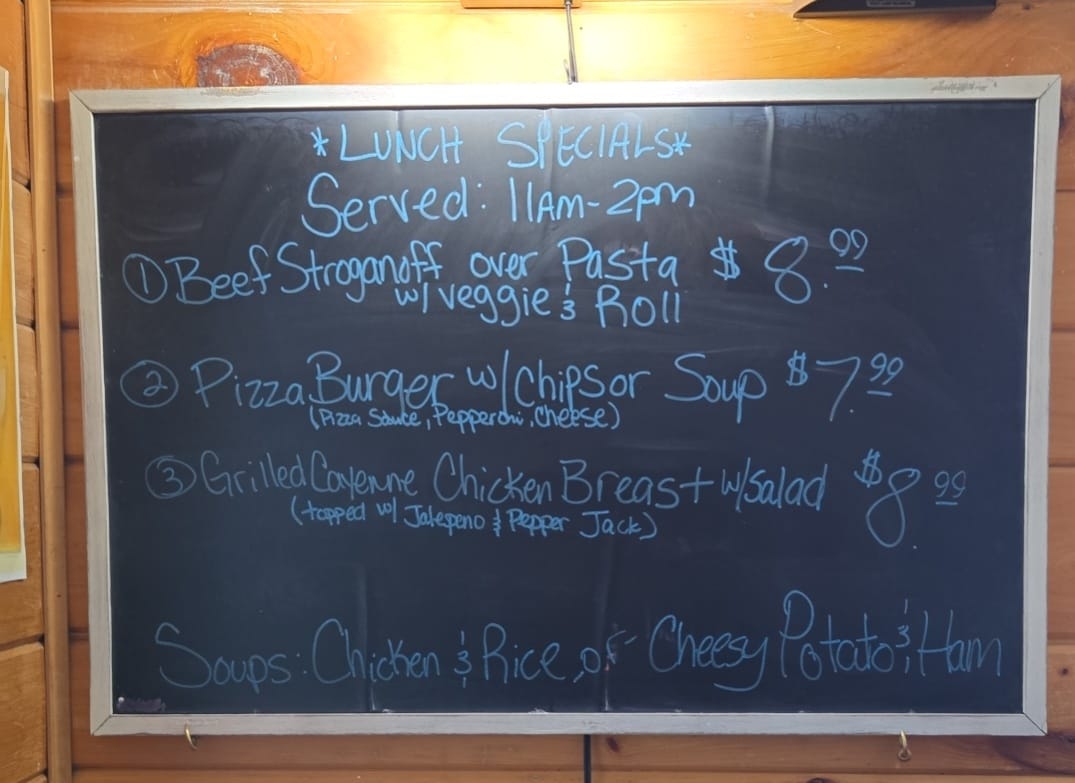 *LUNCH SPECIALS*
Served: 11AM-2pm
① Beef Stroganoff over Pasta $8.99
w/ veggie & Roll
② Pizza Burger w/ Chips or Soup $7.99
(Pizza Sauce, Pepperoni, Cheese)
③ Grilled Cayenne Chicken Breast w/ Salad $8.99
(topped w/ Jalepeno & Pepper Jack)
Soups: Chicken & Rice, or Cheesy Potato & Ham